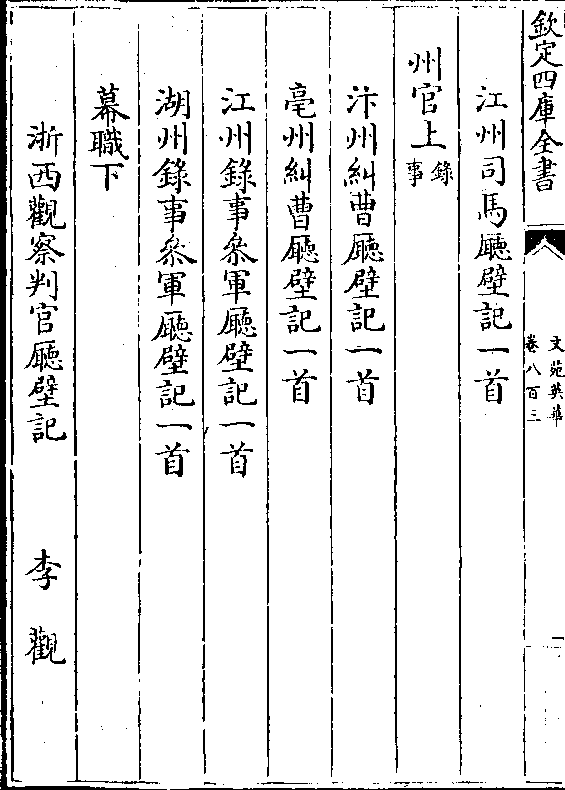 欽定四庫全書
文苑英華
卷八百三
一
江州司馬廳壁記一首
州官上錄事
汴州糾曹廳壁記一首
亳州糾曹廳壁記一首
江州錄事叅軍廳壁記一首
湖州錄事叅軍廳壁記一首
幕職下
浙西觀察判官廳壁記 李觀